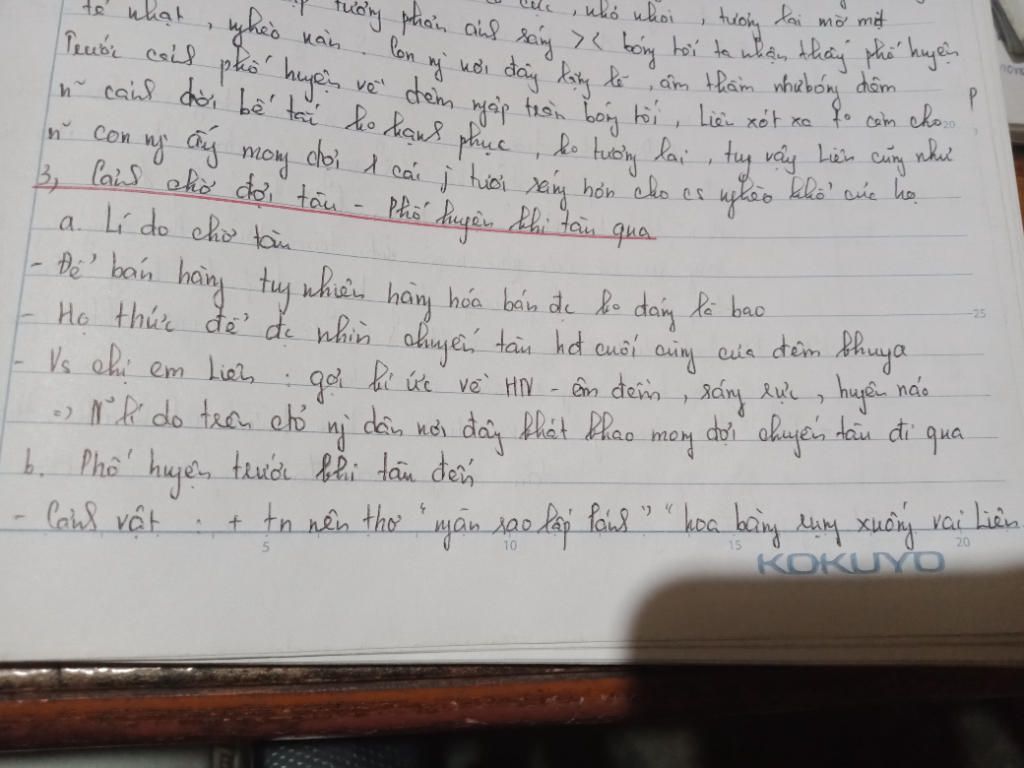 cực, nhỏ nhoi, tương lai mờ mịt
tẻ nhạt, nghèo nàn. Con ng nơi đây lặng lẽ, âm thầm như bóng đêm
tương phản ánh sáng >< bóng tối ta nhận thấy phố huyện
Trước cảnh phố huyện về đêm ngập tràn bóng tối, Liên xót xa cảm cho
n~ cảnh đời bế tắc ko hạnh phục, ko tương lai, tuy vậy Liên cũng như
n~ con ng ấy mong đợi 1 cái j tươi sáng hơn cho cs nghèo khổ của họ
3, Cảnh chờ đợi tàu - Phố huyện khi tàu qua
a. Lí do chờ tàu
- Để bán hàng tuy nhiên hàng hóa bán đc ko đáng là bao
- Họ thức để đc nhìn chuyến tàu hđ cuối cùng của đêm khuya
- Vs chị em Liên : gợi kí ức về HN - êm đềm, sáng rực, huyên náo
=> N~ lí do trên chỏ ng dân nơi đây khát khao mong đợi chuyến tàu đi qua
b. Phố huyện trước khi tàu đến
- Cảnh vật : + tn nên thơ "ngàn sao lấp lánh" "hoa bàng rụng xuống vai Liên
P
20
25
5 10 15 20
KOKUYO